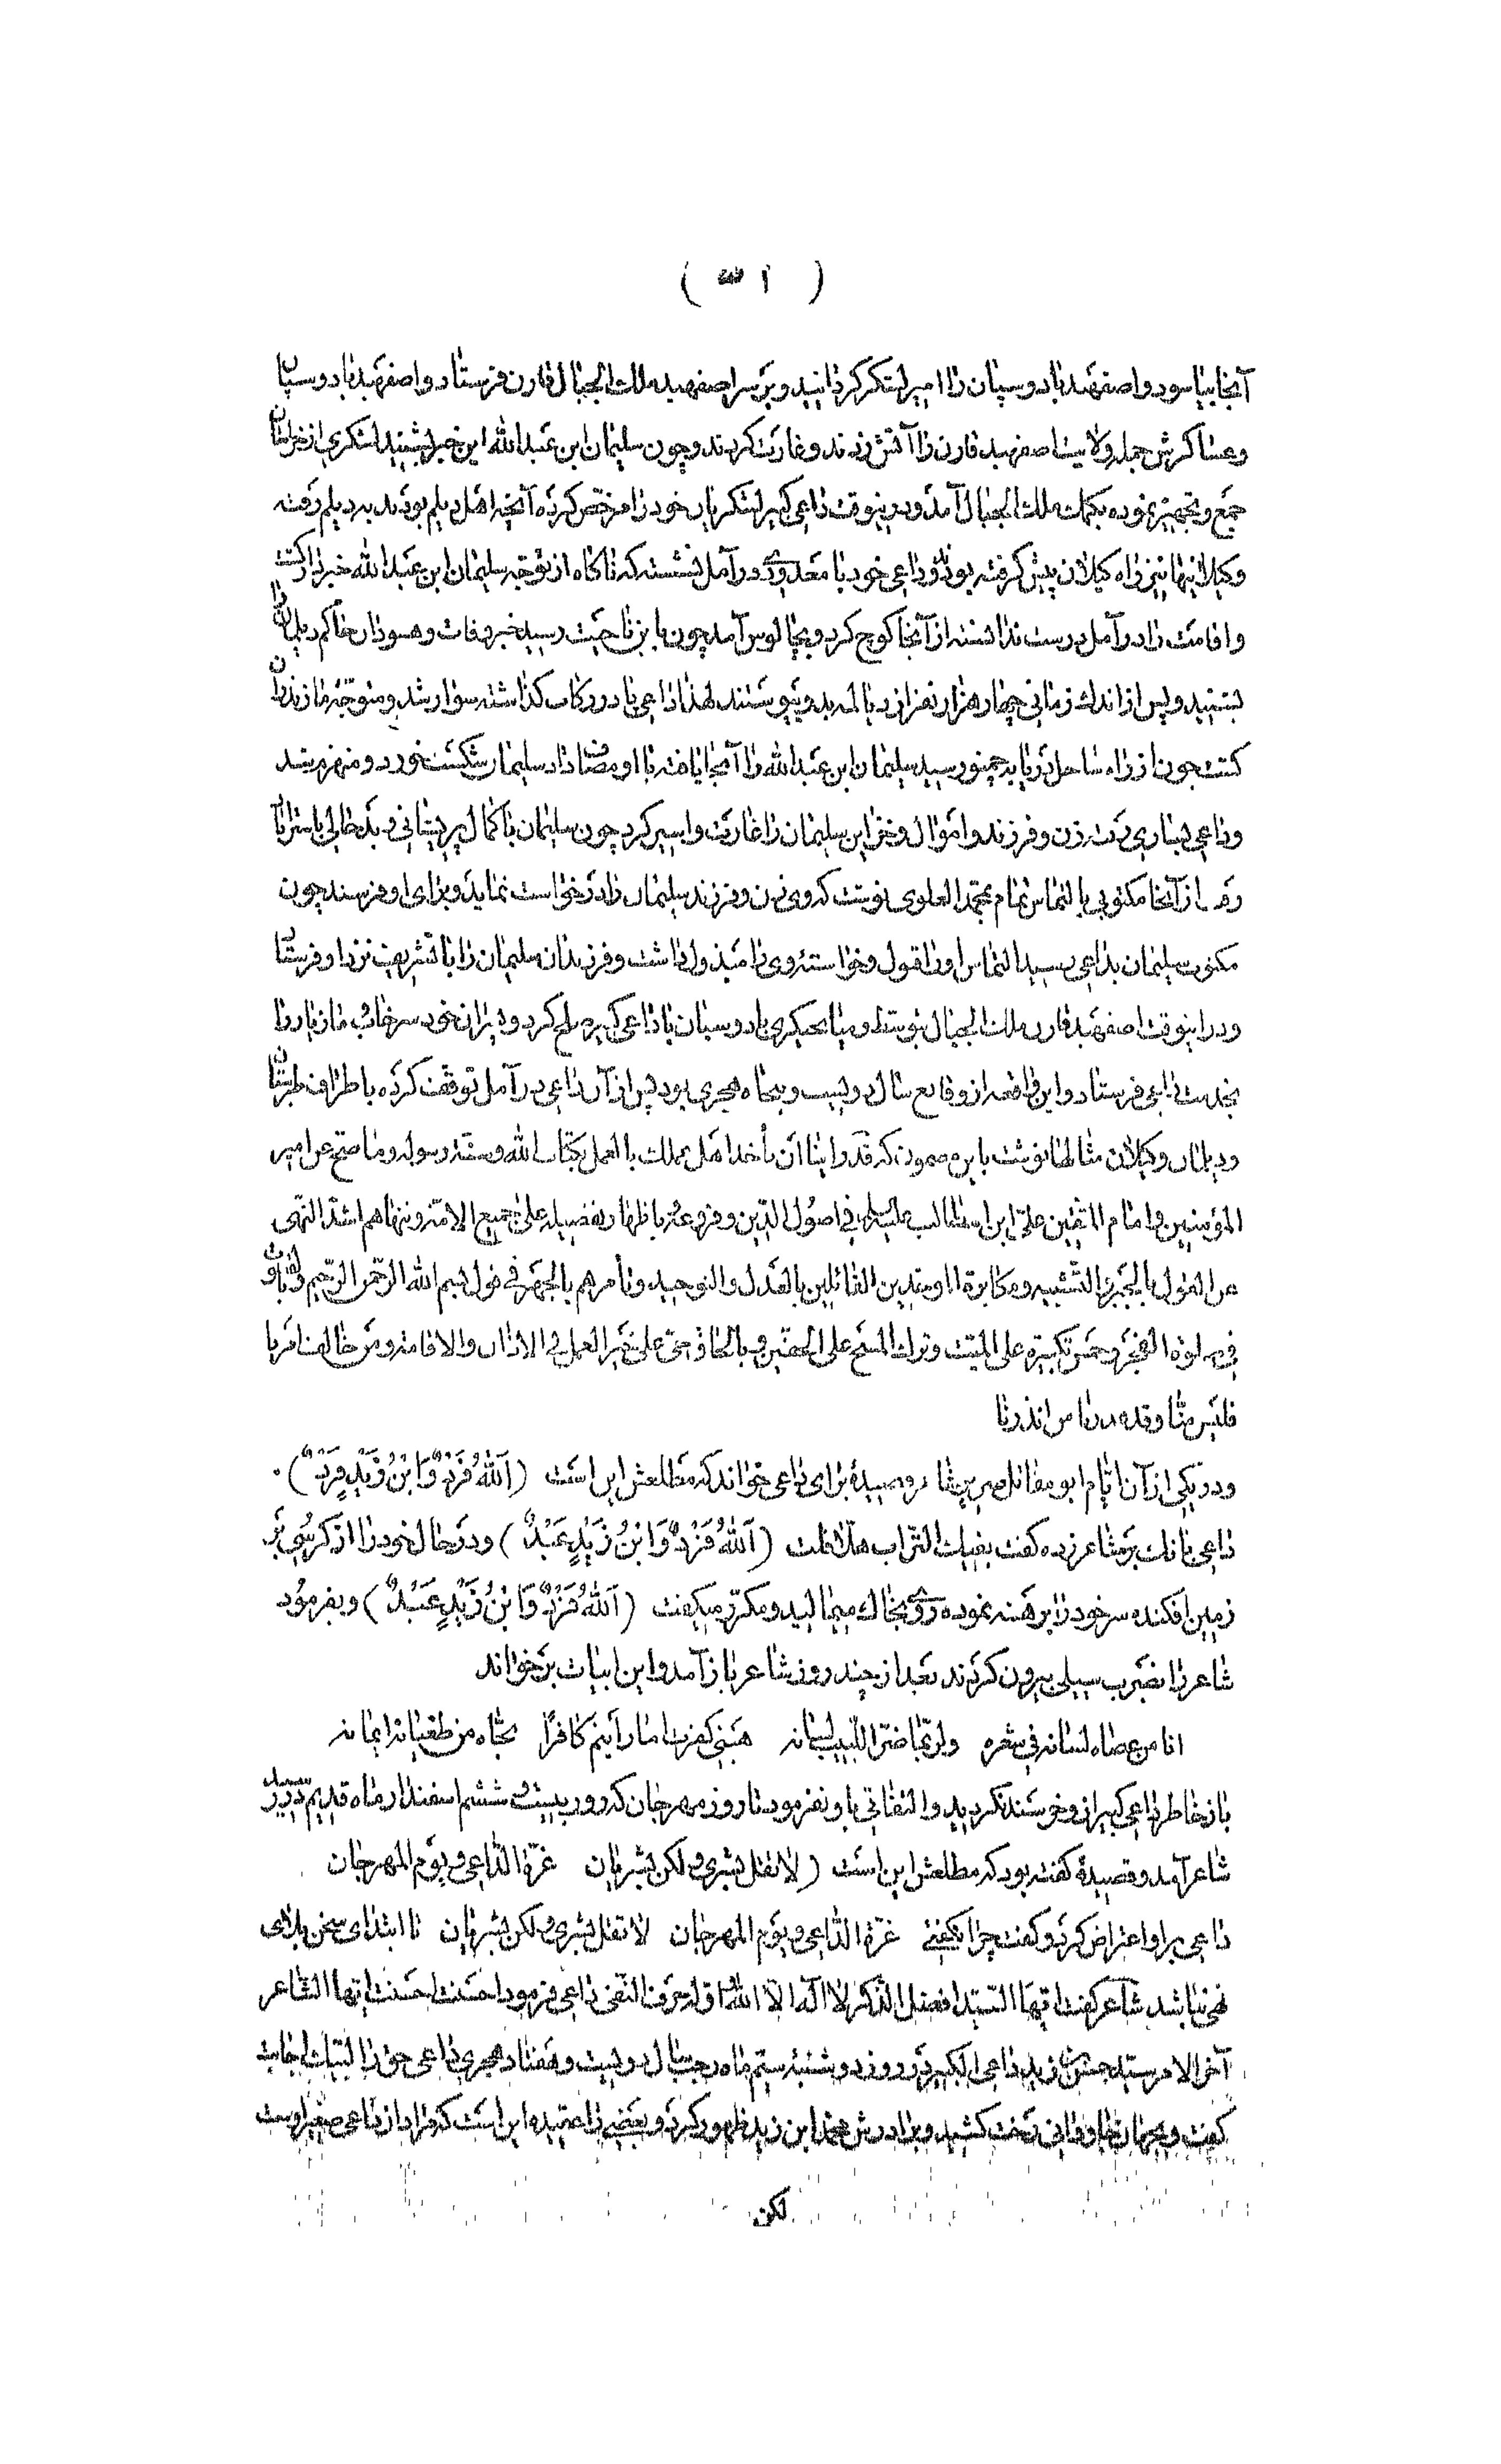 آنجا بیاسود و اصفهبد بادوسپان را امیر لشکر گردانید و بر سر اصفهبد ملک الجبال قارن فرستاد و اصفهبد بادوسپان
و عساکرش جمله ولایت اصفهبد قارن را آتش زدند و غارت کردند و چون سلیمان ابن عبدالله این خبر بشنید لشکری از خراسان
جمع و تجهیز نموده بکمک ملک الجبال آمد و درینوقت داعی کبیر لشکریان خود را مرخص کرده آنچه اهل دیلم بودند بدیلم رفته
و کیلانیها نیز راه کیلان پیش کرفته بودند و داعی خود با معدودی در آمل نشسته که ناکاه از توجه سلیمان ابن عبدالله خبردار کشت
و اقامت را در آمل درست نداشته از آنجا کوچ کرد و بچالوس آمد چون باین ناحیت رسید خبر وفات وهسودان حاکم دیلمان را
بشنید و پس از اندک زمانی چهار هزار نفر از دیالمه بدو پیوستند لهذا داعی پا در رکاب کذاشته سوار شد و متوجه مازندران
کشت چون از راه ساحل دریا بچمنو رسید سلیمان ابن عبدالله را آنجا یافته با او مصاف داد سلیمان شکست خورد و منهزم شد
و داعی بساری رفت زن و فرزند و اموال و خزاین سلیمان را غارت و اسیر کرد چون سلیمان با کمال پریشانی و بدحالی باسترآباد
رفت از آنجا مکتوبی بالتماس تمام بمحمد العلوی نوشت که وی زن و فرزند سلیمان را درخواست نماید و برای او فرستد چون
مکتوب سلیمان بداعی رسید التماس او را قبول و خواسته وی را مبذول داشت و فرزندان سلیمان را با تشریف نزد او فرستاد
و در اینوقت اصفهبد قارن ملک الجبال بتوسط و میانجیکری بادوسپان با داعی کبیر صلح کرد و پسران خود سرخاب و مازیار را
بخدمت داعی فرستاد و این واقعه از وقایع سال دویست و پنجاه هجری بود پس از آن داعی در آمل توقف کرده باطراف طبرستان
و دیلمان و کیلان مثالها نوشت باین مضمون که قد راینا ان تأخذ اهل عملک بالعمل بکتاب الله و سنة رسوله و ما صح عن امیر
المؤمنین و امام المتقین علی ابن ابیطالب علیه السلم فی اصول الدین و فروعه باظهار تفضیله علی جمیع الامة و تنهاهم اشد النهی
عن القول بالجبر و التشبیه و مکابرة الموحدین القائلین بالعدل والتوحید و تأمرهم بالجهر فی قول بسم الله الرحمن الرحیم و القنوت
فی صلوة الفجر و خمس تکبیرة علی المیت و ترک المسح علی الخفین و بالحاق حی علی خیر العمل فی الاذان والاقامة و من خالف امرنا
فلیس منّا و قد اعذر من انذرنا
و در یکی از آن ایام ابو مقاتل ضریر شاعر قصیدهٔ برای داعی خواند که مطلعش این است (اَللهُ فَرْدٌ وَابْنُ زَیْدٍ فَرْدٌ)
داعی بانک بر شاعر زده کفت بفیک التراب هلّا قلت (اَللهُ فَرْدٌ وَابْنُ زَیْدٍ عَبْدٌ) و در حال خود را از کرسی بر
زمین افکنده سر خود را برهنه نموده روی بخاک میمالید و مکرر میکفت (اَللهُ فَرْدٌ وَابْنُ زَیْدٍ عَبْدٌ) و بفرمود
شاعر را بضرب سیلی بیرون کردند بعد از چند روز شاعر باز آمد و این ابیات بر خواند
انا من عصاه لسانه فی شعره ولربّما ضرّ اللبیب لسانه هبنی کفرت اما رأیتم کافراً نجّاه من طغیانه ایمانه
باز خاطر داعی کبیر از و خوشنود نکردید و التفاتی باو نفرمود تا روز مهرجان که روز بیست و ششم اسفندارماه قدیم
شاعر آمد و قصیدهٔ کفته بود که مطلعش این است (لا تقل بشری ولکن بشریان غرّة الداعی و یوم المهرجان
داعی بر او اعتراض کرد و کفت چرا نکفتی غرّة الداعی و یوم المهرجان لا تقل بشری ولکن بشریان تا ابتدای سخن بلای
نهی نباشد شاعر کفت ایّها السیّد افضل الذکر لا اله الا الله اوله حرف النفی داعی فرمود احسنت احسنت ایّها الشاعر
آخر الامر سید حسن ابن زید داعی الکبیر در روز دوشنبه سیّم ماه رجب سال دویست و هفتاد هجری داعی حق را لبّیک اجابت
کفت و بجهان جاودانی رخت کشید و برادرش محمد ابن زید ظهور کرد و بعضی را عقیده این است که مراد از داعی صغیر اوست
لکن